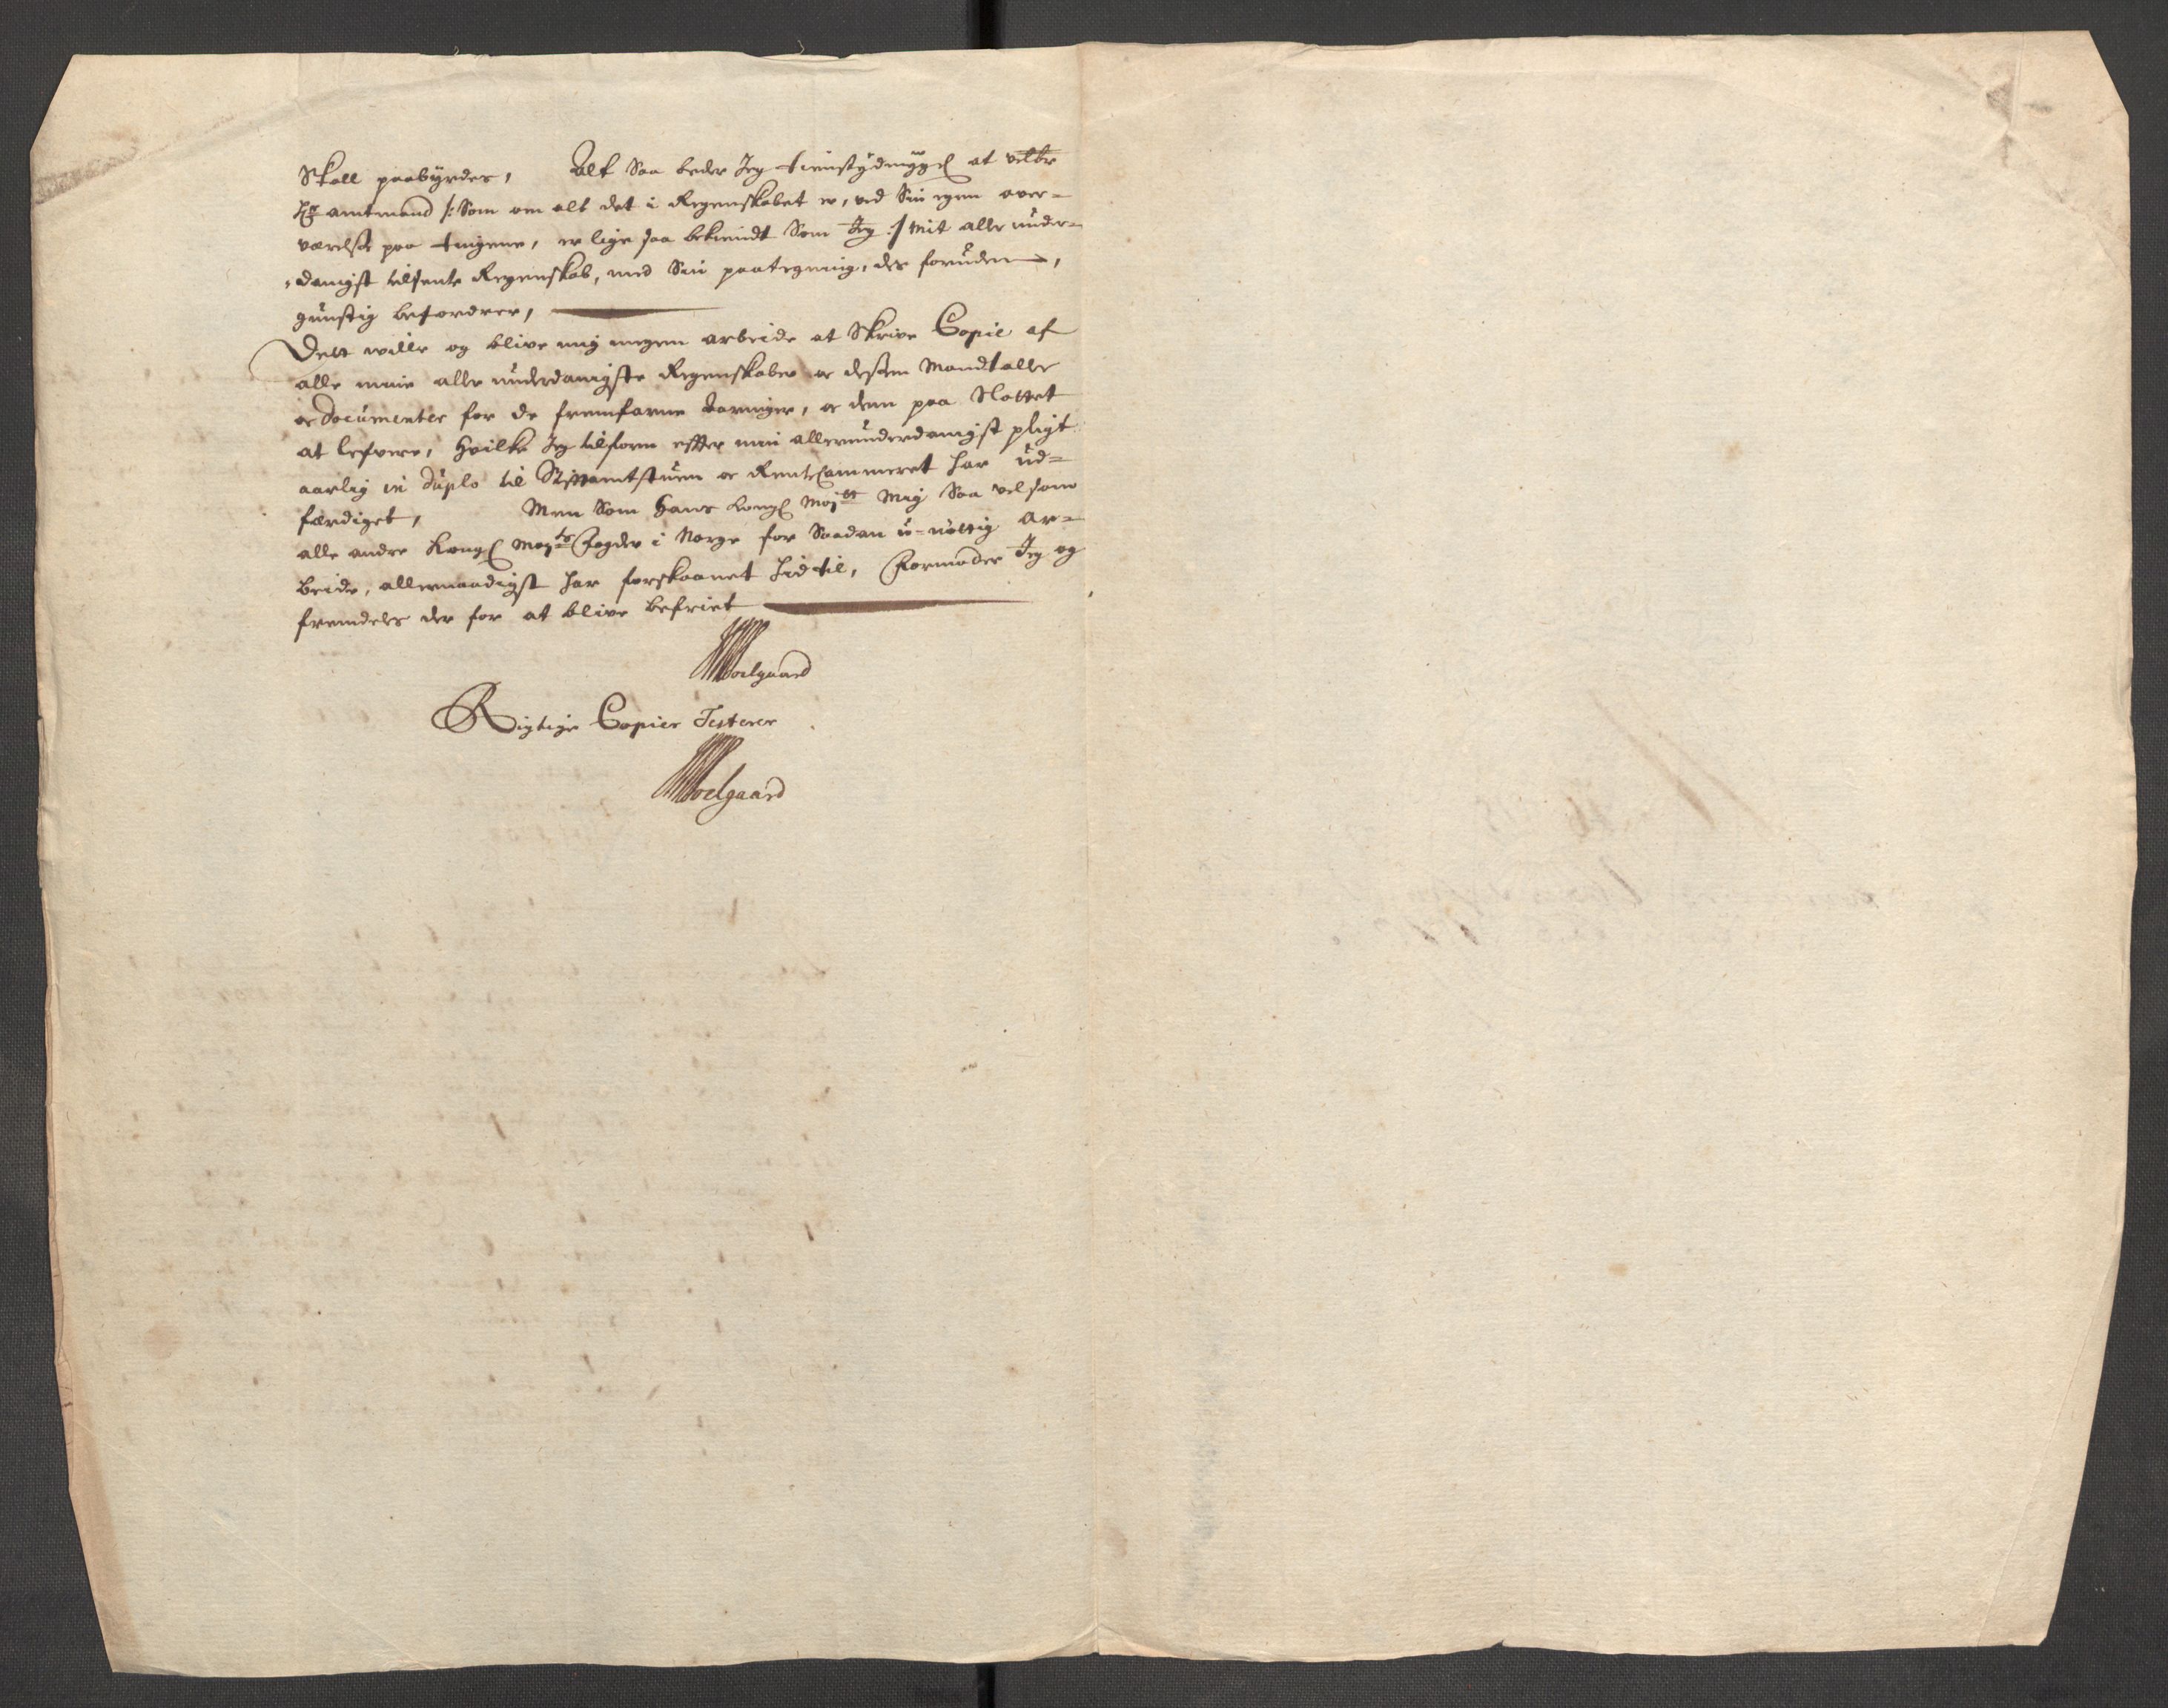 Skall paabyrdes, Alt Saa beder Jeg tienstydmygel at velbr
Hr amtmand /: Som om alt det i Regenskabet er, ved Sin egen over=
værelse paa tingene, er lige saa bekiendt Som Jeg :/ Mit aller under=
danigst tilsente Regenskab, med Sin paategning, des foruden,
gunstig befordrer,
Dett wille og blive mig megen arbeide at Skrive Copie af
alle mine aller underdanigste Regenskaber oc dessen Mandtaller
oc Documenter for de fremfarne aaringer, oc dem paa Slottet
at lefvere, Hvilke Jeg tilforn effter min allerunderdanigst pligt
aarlig in Duplo til Stiftamtstuen oc RenteCammeret har ud=
færdiget, Men Som Hans Kongl Mayttt Mig Saa vel som
alle andre Kongl Maytts Fogder i Norge for Saadan u-nøttig Ar=
beide, allernaadigst har forskaanet hid til, Formoder Jeg og
fremdeles der for at blive befriet
Moelgaard
Rigtige Copier Testerer
Moelgaard